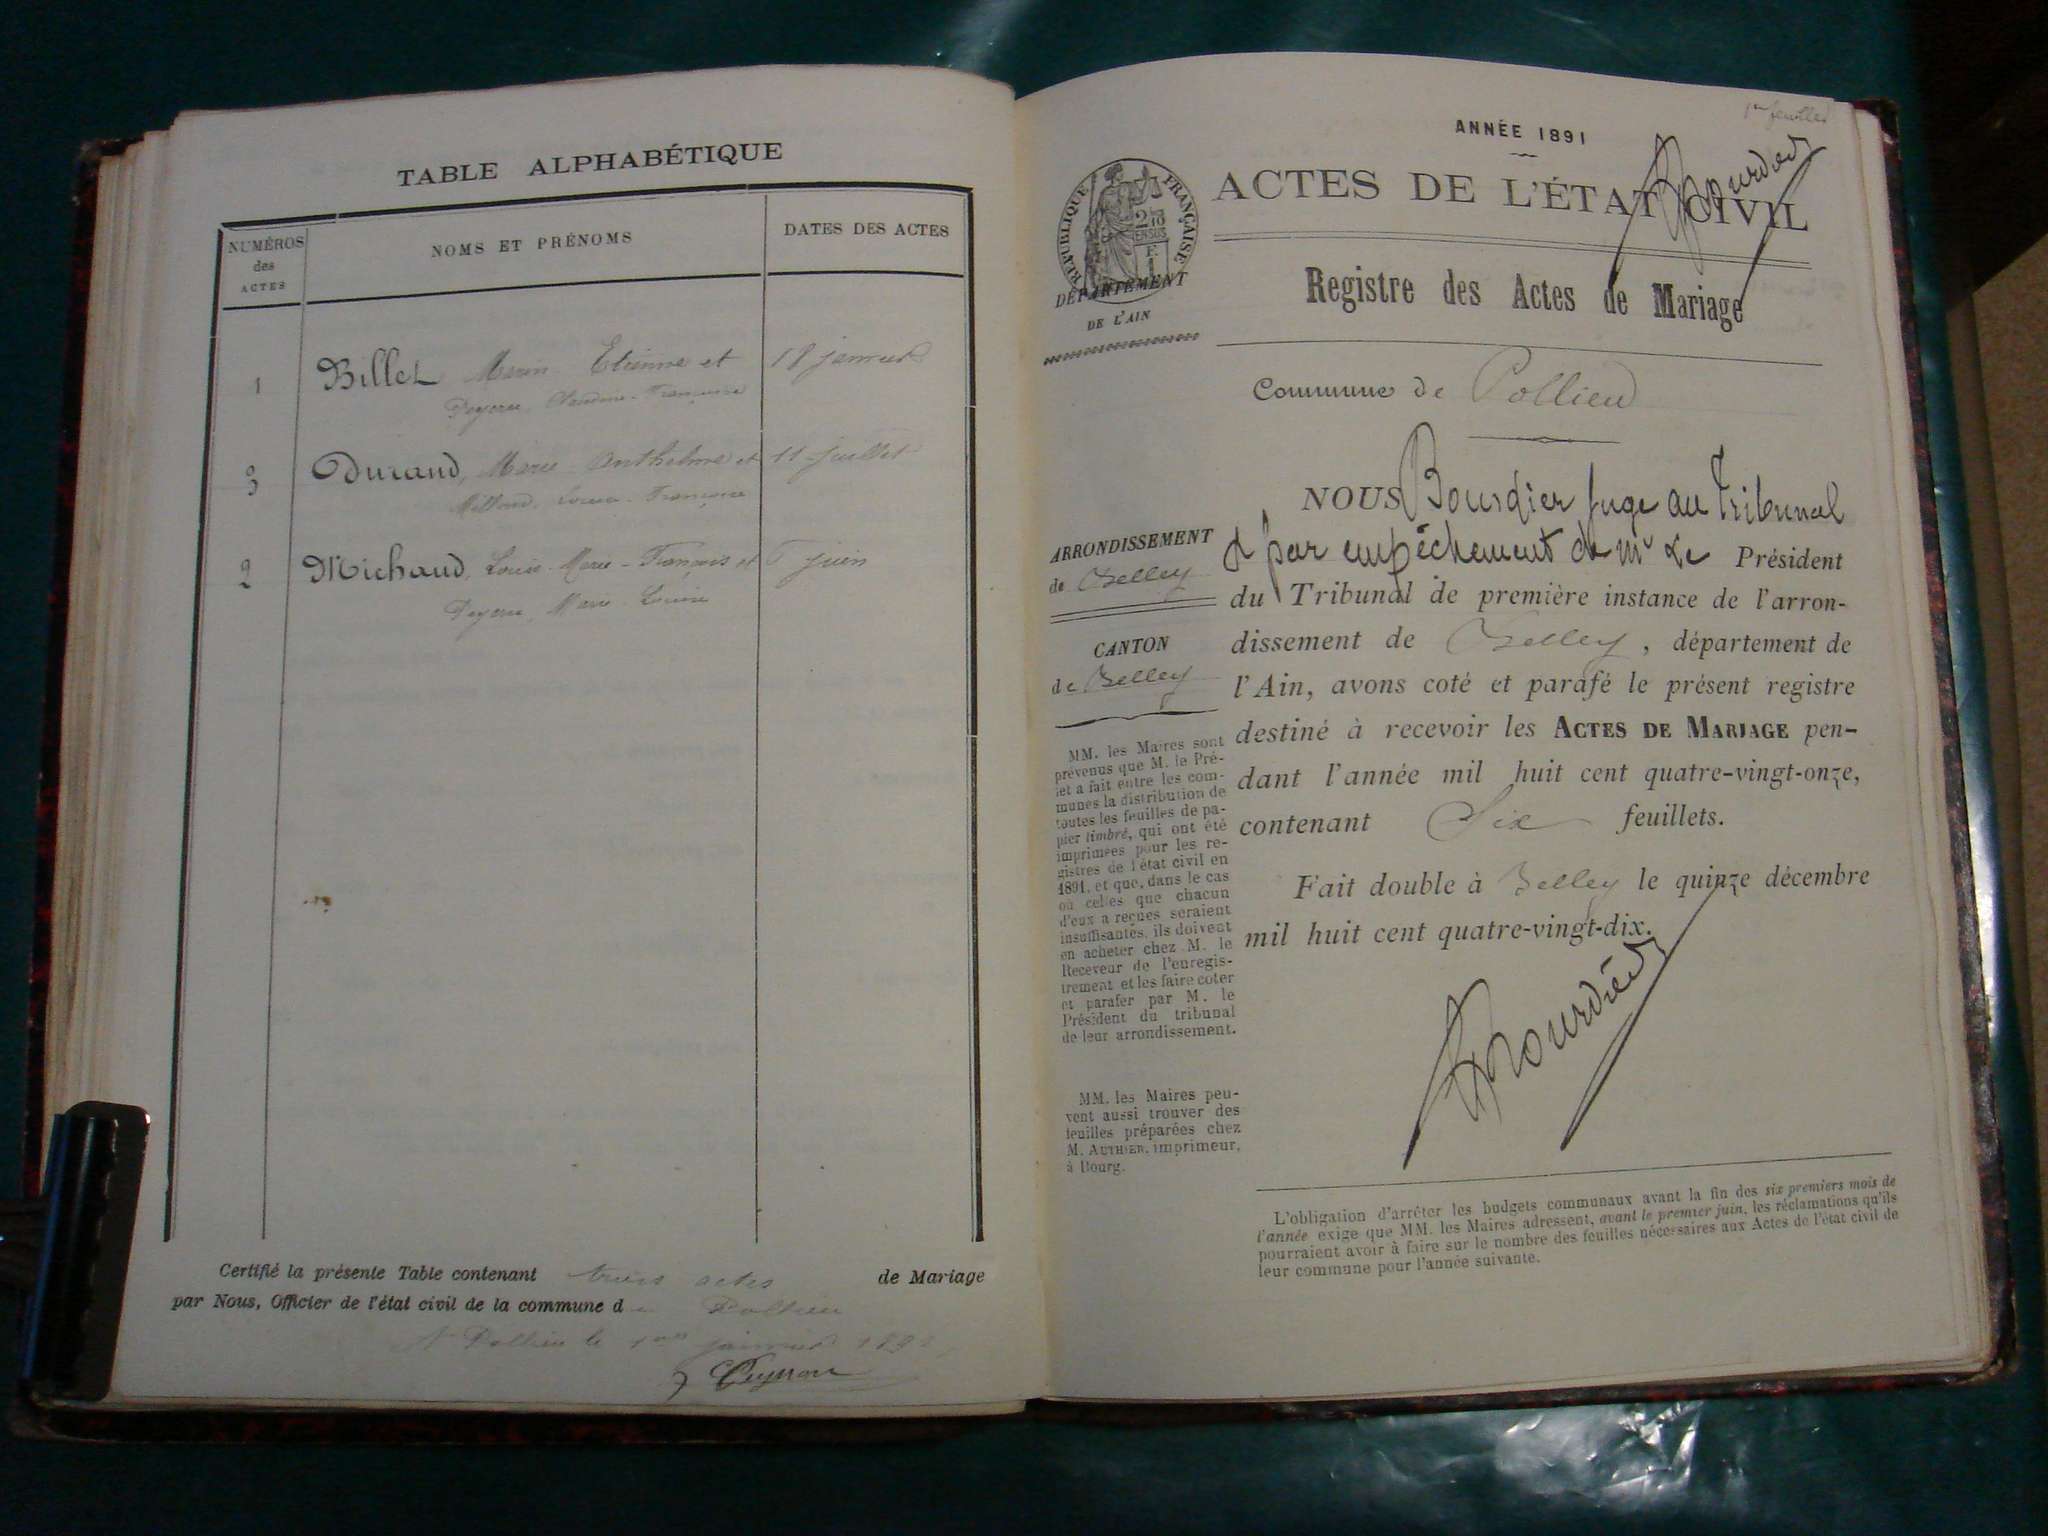 TABLE ALPHABÉTIQUE
NUMÉROS
des
ACTES
NOMS ET PRÉNOMS
DATES DES ACTES
1 Billet Marin Etienne et 18 janvier
Peyron Claudine-Françoise
3 Durand, Marie Anthelme et 11 juillet
Louise-Françoise
2 Michaud, Louis-Marie-François et 6 juin
Marie-Louise
Certifié la présente Table contenant trois actes de Mariage
par Nous, Officier de l'état civil de la commune de Pollieu
A Pollieu le 1er janvier
Peyron
1er feuillet
ANNÉE 1891
Bourdier
ACTES DE L'ÉTAT CIVIL
RÉPUBLIQUE FRANÇAISE
DÉPARTEMENT
DE L'AIN
Registre des Actes de Mariage
Commune de Pollieu
ARRONDISSEMENT
de Belley
CANTON
de Belley
MM. les Maires sont
prévenus que M. le Pré-
fet a fait entre les com-
munes la distribution de
toutes les feuilles de pa-
pier timbré, qui ont été
imprimées pour les re-
gistres de l'état civil en
1891, et que, dans le cas
où celles que chacun
d'eux a reçues seraient
insuffisantes, ils doivent
en acheter chez M. le
Receveur de l'enregis-
trement et les faire coter
et parafer par M. le
Président du tribunal
de leur arrondissement.
MM. les Maires peu-
vent aussi trouver des
feuilles préparées chez
M. AUTHIER, imprimeur,
à Bourg.
NOUS Bourdier juge au Tribunal
et par empêchement de Mr Le Président
du Tribunal de première instance de l'arron-
dissement de Belley, département de
l'Ain, avons coté et parafé le présent registre
destiné à recevoir les ACTES DE MARIAGE pen-
dant l'année mil huit cent quatre-vingt-onze,
contenant Six feuillets.
Fait double à Belley le quinze décembre
mil huit cent quatre-vingt-dix.
Bourdier
L'obligation d'arrêter les budgets communaux avant la fin des six premiers mois de
l'année exige que MM. les Maires adressent, avant le premier juin, les réclamations qu'ils
pourraient avoir à faire sur le nombre des feuilles nécessaires aux Actes de l'état civil de
leur commune pour l'année suivante.